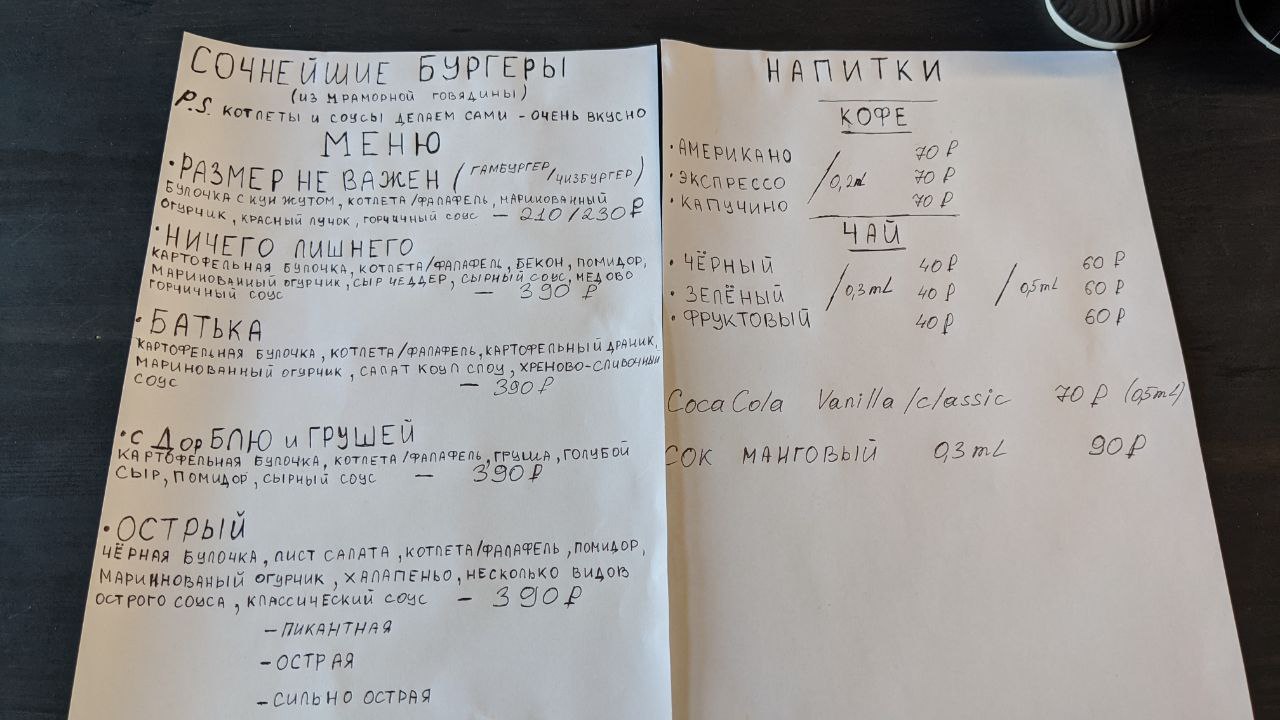 СОЧНЕЙШИЕ БУРГЕРЫ
(ИЗ МРАМОРНОЙ ГОВЯДИНЫ)
P.S. КОТЛЕТЫ И СОУСЫ ДЕЛАЕМ САМИ - ОЧЕНЬ ВКУСНО
МЕНЮ
• РАЗМЕР НЕ ВАЖЕН (ГАМБУРГЕР/ЧИЗБУРГЕР)
БУЛОЧКА С КУНЖУТОМ, КОТЛЕТА/ФАЛАФЕЛЬ, МАРИНОВАННЫЙ
ОГУРЧИК, КРАСНЫЙ ЛУЧОК, ГОРЧИЧНЫЙ СОУС — 210/230₽
• НИЧЕГО ЛИШНЕГО
КАРТОФЕЛЬНАЯ БУЛОЧКА, КОТЛЕТА/ФАЛАФЕЛЬ, БЕКОН, ПОМИДОР,
МАРИНОВАННЫЙ ОГУРЧИК, СЫР ЧЕДДЕР, СЫРНЫЙ СОУС, МЕДОВО
ГОРЧИЧНЫЙ СОУС — 390₽
• БАТЬКА
КАРТОФЕЛЬНАЯ БУЛОЧКА, КОТЛЕТА/ФАЛАФЕЛЬ, КАРТОФЕЛЬНЫЙ ДРАНИК,
МАРИНОВАННЫЙ ОГУРЧИК, САЛАТ КОУЛ СЛОУ, ХРЕНОВО-СЛИВОЧНЫЙ
СОУС — 390₽
• С ДорБЛЮ и ГРУШЕЙ
КАРТОФЕЛЬНАЯ БУЛОЧКА, КОТЛЕТА/ФАЛАФЕЛЬ, ГРУША, ГОЛУБОЙ
СЫР, ПОМИДОР, СЫРНЫЙ СОУС — 390₽
• ОСТРЫЙ
ЧЁРНАЯ БУЛОЧКА, ЛИСТ САЛАТА, КОТЛЕТА/ФАЛАФЕЛЬ, ПОМИДОР,
МАРИННОВАНЫЙ ОГУРЧИК, ХАЛАПЕНЬО, НЕСКОЛЬКО ВИДОВ
ОСТРОГО СОУСА, КЛАССИЧЕСКИЙ СОУС — 390₽
— ПИКАНТНАЯ
— ОСТРАЯ
— СИЛЬНО ОСТРАЯ
НАПИТКИ
КОФЕ
• АМЕРИКАНО 70₽
• ЭКСПРЕССО / 0,2mL 70₽
• КАПУЧИНО 70₽
ЧАЙ
• ЧЁРНЫЙ 40₽ 60₽
• ЗЕЛЁНЫЙ / 0,3mL 40₽ / 0,5mL 60₽
• ФРУКТОВЫЙ 40₽ 60₽
Coca Cola Vanilla/classic 70₽ (0,5mL)
СОК МАНГОВЫЙ 0,3mL 90₽